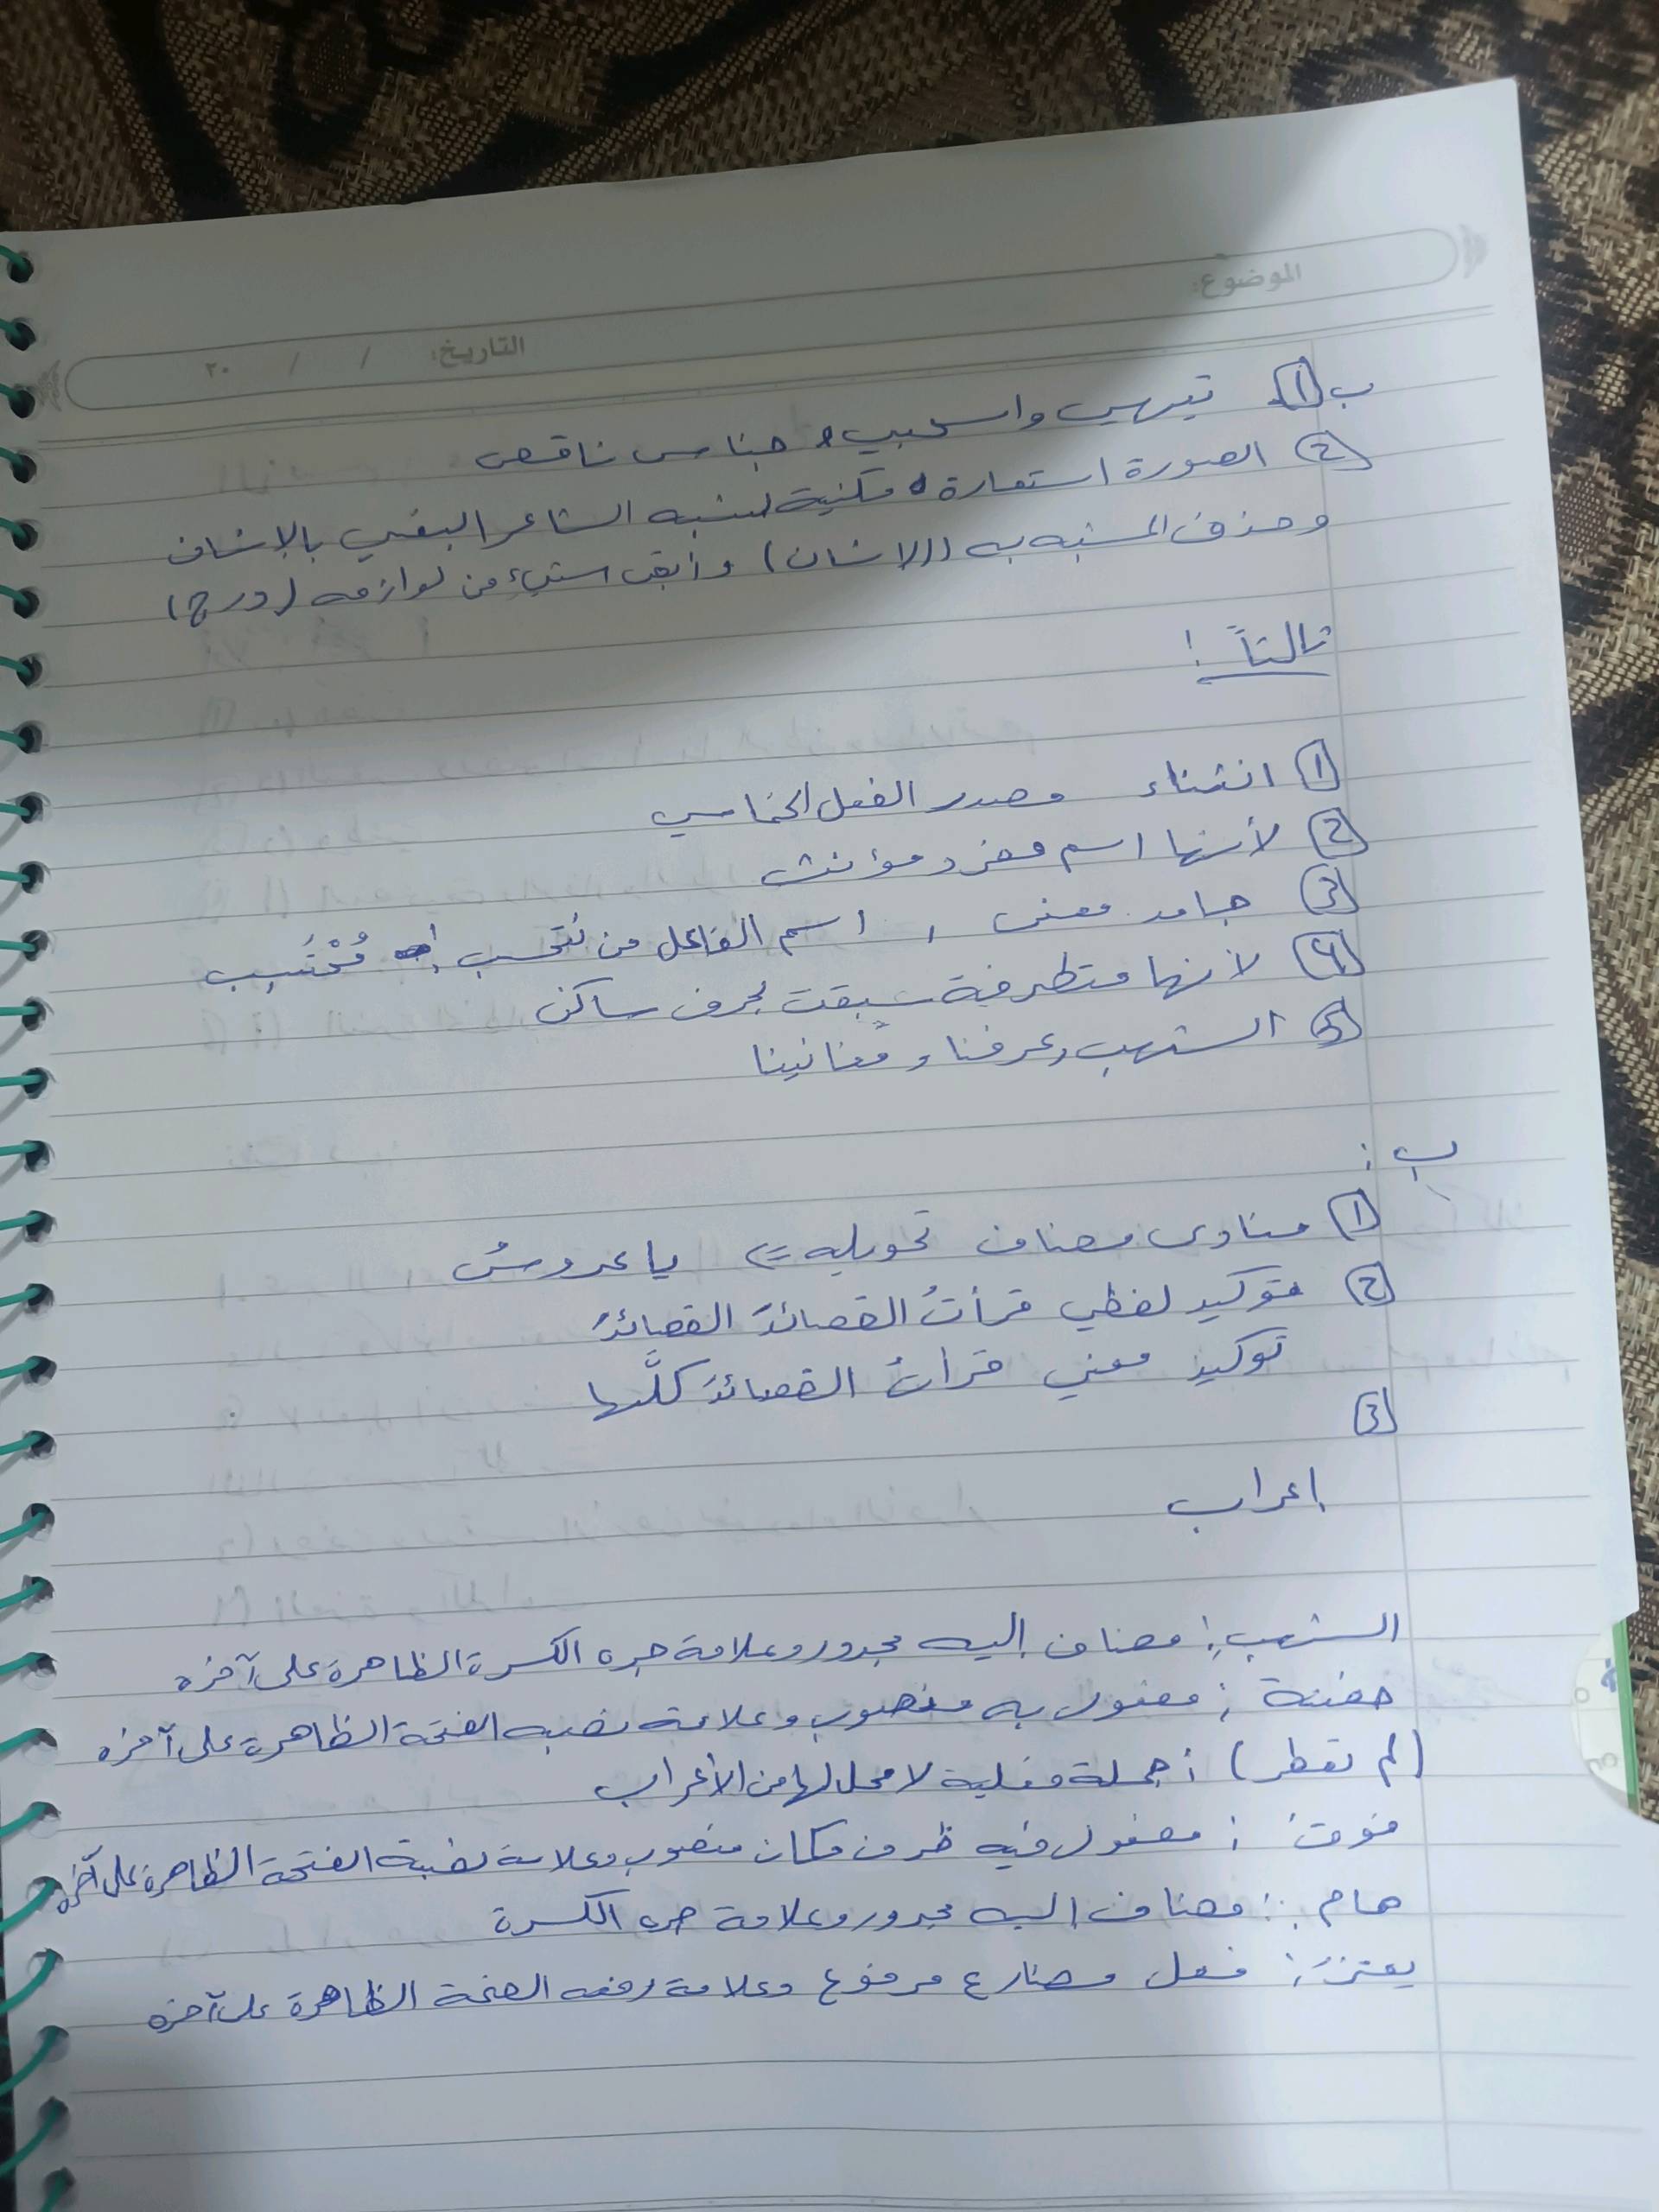 الموضوع:
التاريخ: / / ٢٠
ب ① تيهي واسحبي، جناس ناقص
② الصورة استعارة مكنية لشبه الشاعر البغي بالإنسان
وحذف المشبه به (الإنسان) وأبقى شيء من لوازمه (درج)
ثالثاً:
① انتشاء مصدر الفعل الخماسي
② لأنها اسم مفرد مؤنث
③ جامد معنى، اسم الفاعل من نحتسب مُحْتَسِب
④ لأنها متطرفة سبقت بحرف ساكن
⑤ الشهب، عرفنا، مغانينا
ب:
① منادى مضاف تحويله ⇐ يا عروسُ
② توكيد لفظي قرأتُ القصائدَ القصائدَ
توكيد معني قرأتُ القصائدَ كلَّها
③
إعراب
الشهب: مضاف إليه مجرور وعلامة جره الكسرة الظاهرة على آخره
حفنة: مفعول به منصوب وعلامة نصبه الفتحة الظاهرة على آخره
(لم تعطر): جملة فعلية لا محل لها من الأعراب
فوق: مفعول فيه ظرف مكان منصوب وعلامة نصبة الفتحة الظاهرة على آخره
هام: مضاف إليه مجرور وعلامة جره الكسرة
يعتز: فعل مضارع مرفوع وعلامة رفعه الضمة الظاهرة على آخره